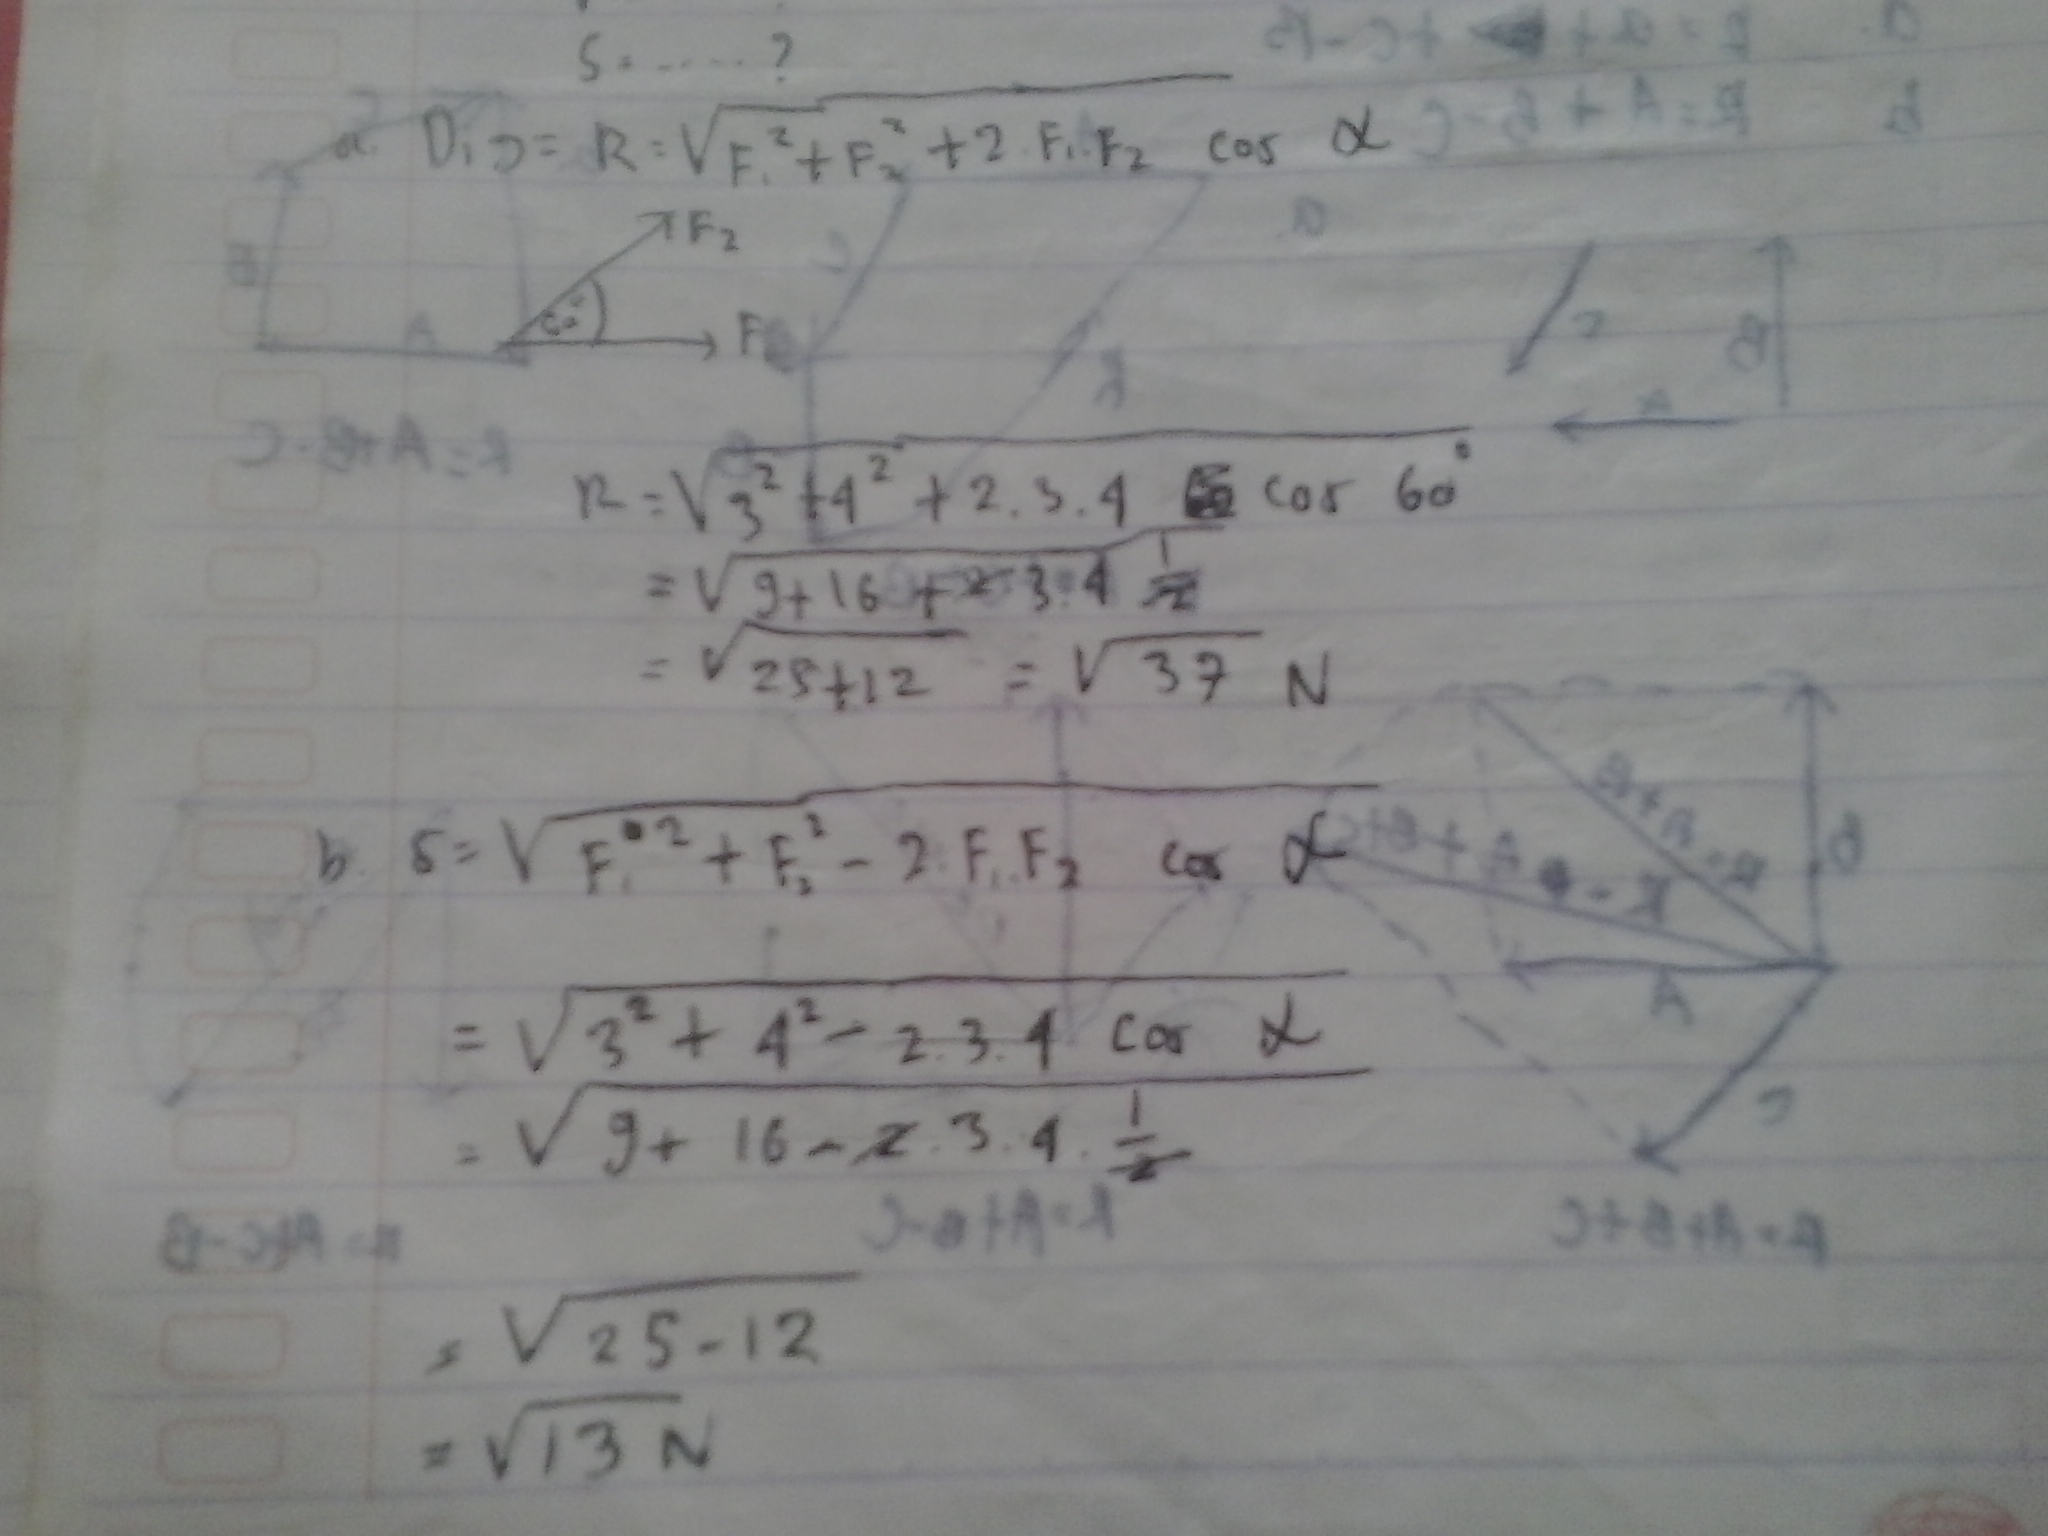 S = ..... ?
a. Dij = R = √F₁² + F₂² + 2 . F₁ . F₂ cos α
F₂
60°
F
R = √3² + 4² + 2 . 3 . 4 cos 60°
= √9 + 16 + 2 . 3 . 4 1/2
= √25 + 12 = √37 N
b. S = √F₁² + F₂² - 2 . F₁ . F₂ cos α
= √3² + 4² - 2 . 3 . 4 cos α
= √9 + 16 - 2 . 3 . 4 . 1/2
= √25 - 12
= √13 N